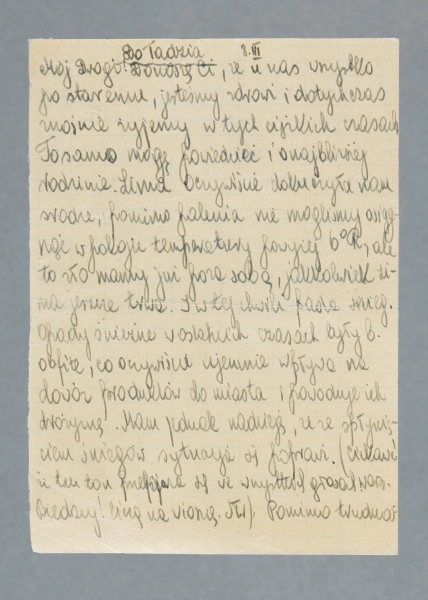 Do Tadzia 8.III
Mój Drogi! Donoszę Ci, że u nas wszystko
po staremu, jesteśmy zdrowi i dotychczas
znośnie żyjemy w tych ciężkich czasach
To samo mogę powiedzieć i o najbliższej
rodzinie. Zima oczywiście dokuczyła nam
srodze, pomimo palenia nie mogliśmy osią-
gnąć w pokoju temperatury powyżej 6°R, ale
to zło mamy już poza sobą, jakkolwiek zi-
ma jeszcze trwa. I w tej chwili pada śnieg.
Opady śnieżne w ostatnich czasach były b.
obfite, co oczywiście ujemnie wpływa na
dowóz produktów do miasta i powoduje ich
drożyznę. Mam jednak nadzieję, że ze spłynię-
ciem śniegów sytuacja się poprawi. (ciekawe
że ten ton się we wszystkich głosach
biedny! liczą na wiosnę. ). Pomimo trudnoś-